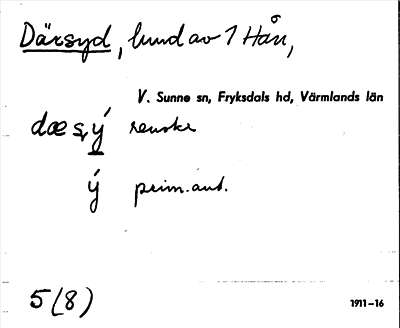 Därsyd, lund av 1 Hån,
V. Sunne sn, Fryksdals hd, Värmlands län
dæsý renskr
ý prim.ant.
5(8)
1911–16